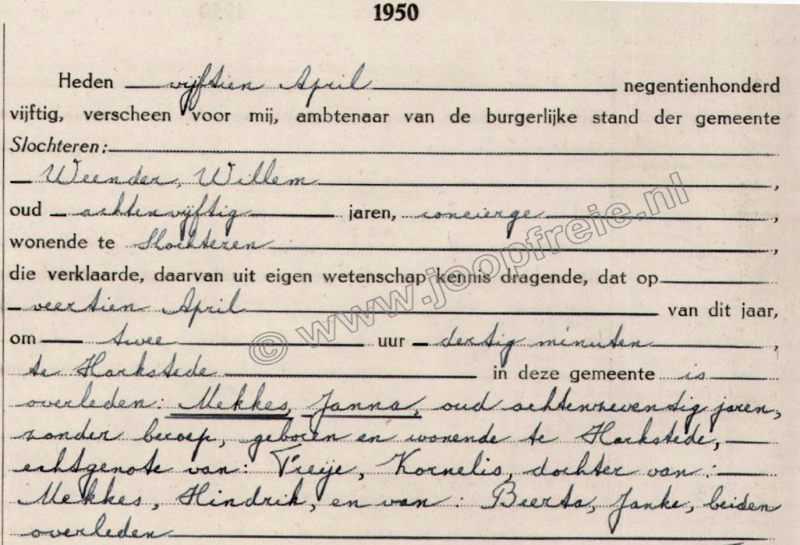 1950
Heden vijftien April negentienhonderd
vijftig, verscheen voor mij, ambtenaar van de burgerlijke stand der gemeente
Slochteren:
Weender, Willem,
oud achtenvijftig jaren, concierge,
wonende te Slochteren,
die verklaarde, daarvan uit eigen wetenschap kennis dragende, dat op
veertien April van dit jaar,
om twee uur dertig minuten,
te Harkstede in deze gemeente is
overleden: Mekkes, Janna, oud achtenzeventig jaren,
zonder beroep, geboren en wonende te Harkstede,
echtgenote van: Freije, Kornelis, dochter van:
Mekkes, Hindrik, en van: Beerta, Janke, beiden
overleden
© www.joopfreie.nl